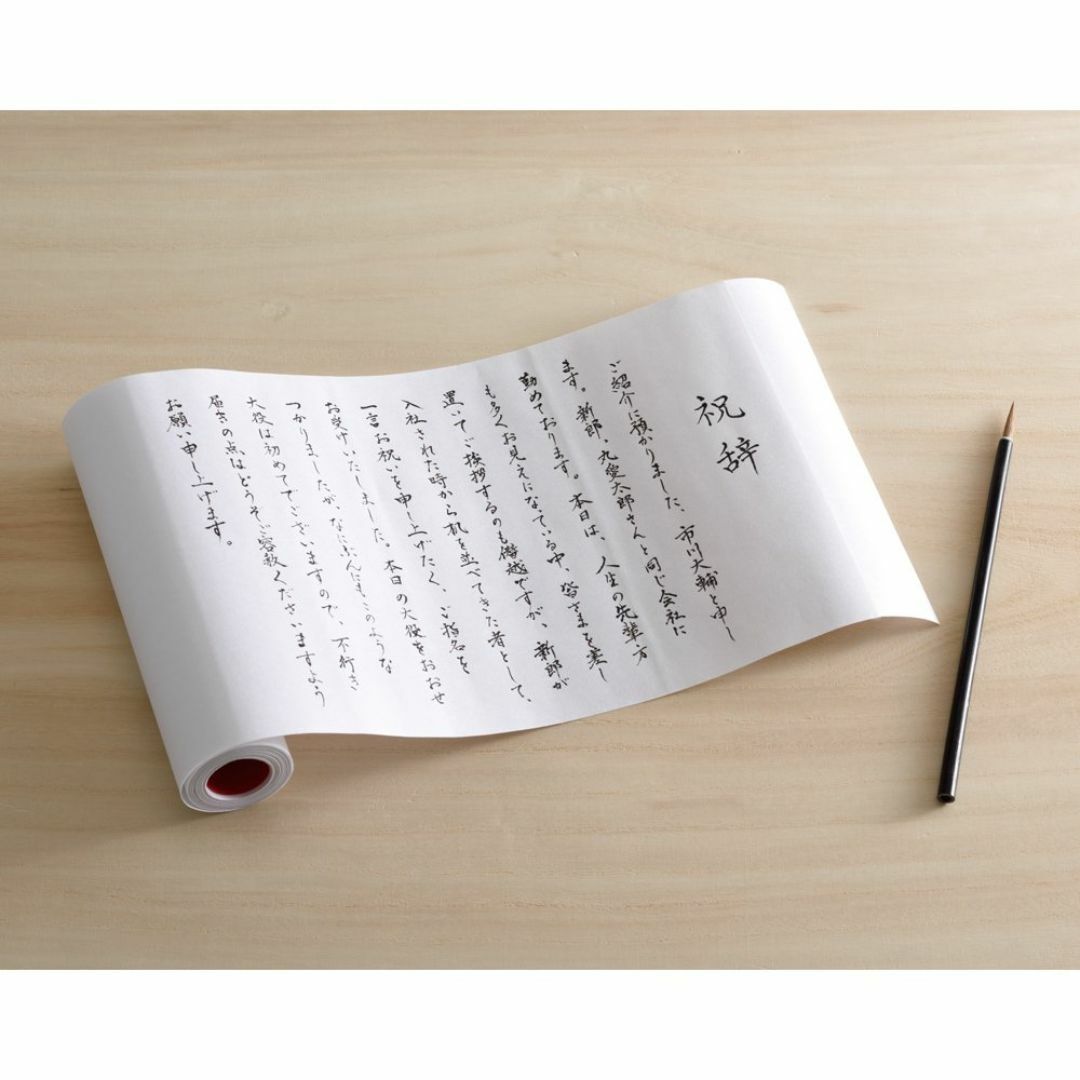 祝辞
ご紹介に預かりました、市川大輔と申し
ます。新郎、丸愛太郎さんと同じ会社に
勤めております。本日は、人生の先輩方
も多くお見えになっている中、皆さまを差し
置いてご挨拶するのも僭越ですが、新郎が
入社された時から机を並べてきた者として、
一言お祝いを申し上げたく、ご指名を
お受けいたしました。本日の大役をおおせ
つかりましたが、なにぶんにもこのような
大役は初めてでございますので、不行き
届きの点はどうぞご容赦くださいますよう
お願い申し上げます。